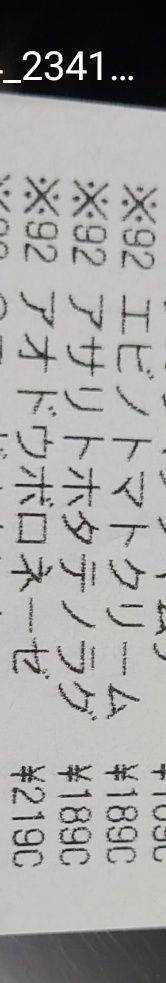 _2341...
※92 エビノトマトクリーム ¥189C
※92 アサリトホタテノラグ ¥189C
※92 アオドウボロネーゼ ¥219C